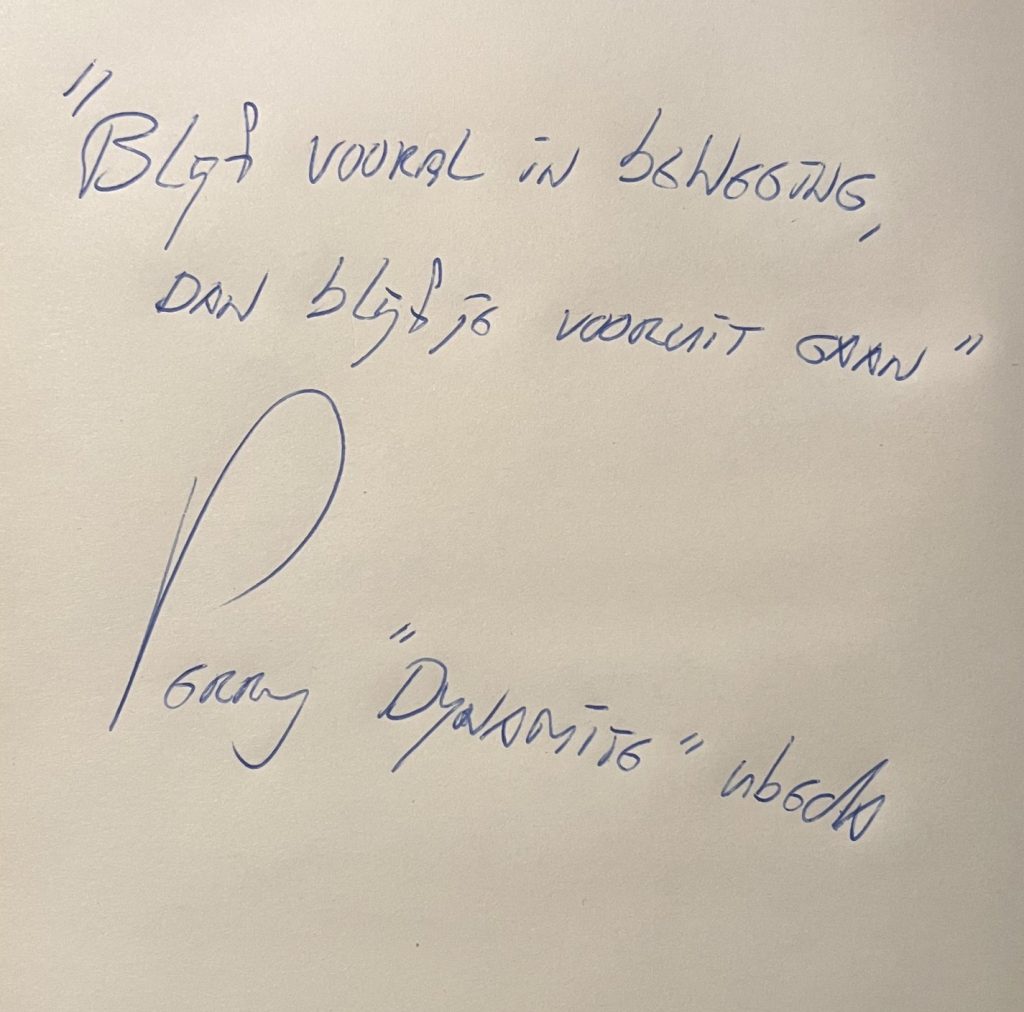 "Blijf vooral in beweging,
dan blijf je vooruit gaan"
Perry "Dynamite" Ubeda